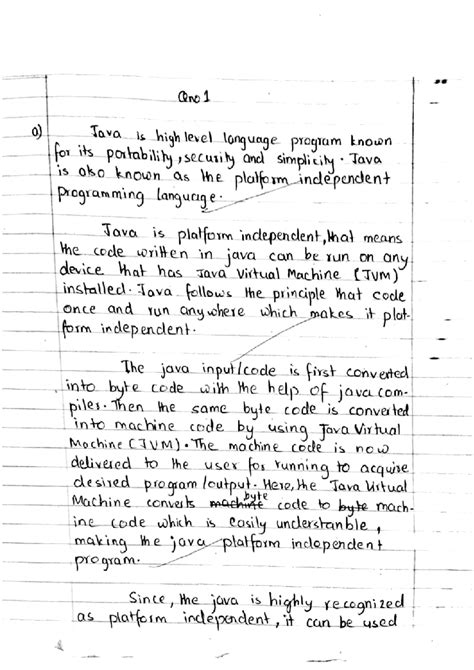 Qno 1
a) Java is high level language program known
for its portability, security and simplicity. Java
is also known as the platform independent
programming language.
Java is platform independent, that means
the code written in java can be run on any
device that has Java Virtual Machine (JVM)
installed. Java follows the principle that code
once and run anywhere which makes it plat-
form independent.
The java input/code is first converted
into byte code with the help of java com-
piles. Then the same byte code is converted
into machine code by using Java Virtual
Machine (JVM). The machine code is now
delivered to the user for running to acquire
desired program/output. Here, the Java Virtual
Machine converts machine byte code to byte mach-
ine code which is easily understanble,
making the java platform independent
program.
Since, the java is highly recognized
as platform independent, it can be used